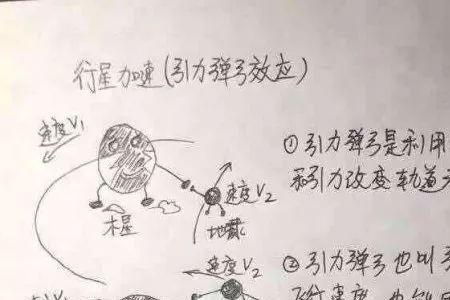 行星加速(引力弹弓效应)
速度V₁
①引力弹弓是利用
和引力改变轨道
速度V₂
木星
地球
速度V₂
②引力弹弓也叫